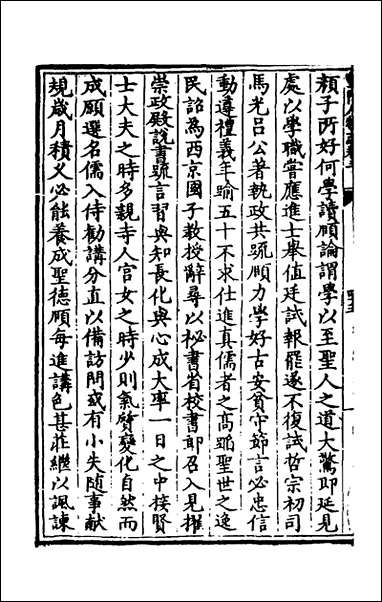 顔子所好何學讀頤論謂學以至聖人之道大驚即延見
處以學職嘗應進士舉值廷試報罷遂不復試哲宗初司
馬光吕公著執政共䟽頤力學好古安貧守節言必忠信
動遵禮義年踰五十不求仕進真儒者之髙蹈聖世之逸
民詔為西京國子教授辭尋以秘書省校書郎召入見擢
崇政殿說書䟽言習與知長化與心成大率一日之中接賢
士大夫之時多親寺人宫女之時少則氣質變化自然而
成願選名儒入侍勸講分直以備訪問或有小失隨事獻
規歲月積久必能養成聖德頤每進講色甚莊繼以諷諫